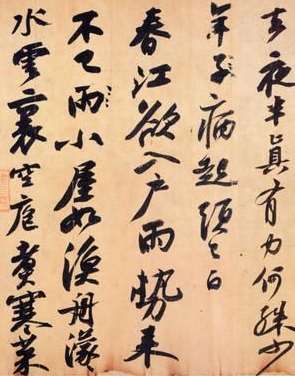 去夜半真有力何殊少
年子病起頭已白
春江欲入戶雨勢來
不已雨小屋如漁舟濛
水雲裏空庖煮寒菜